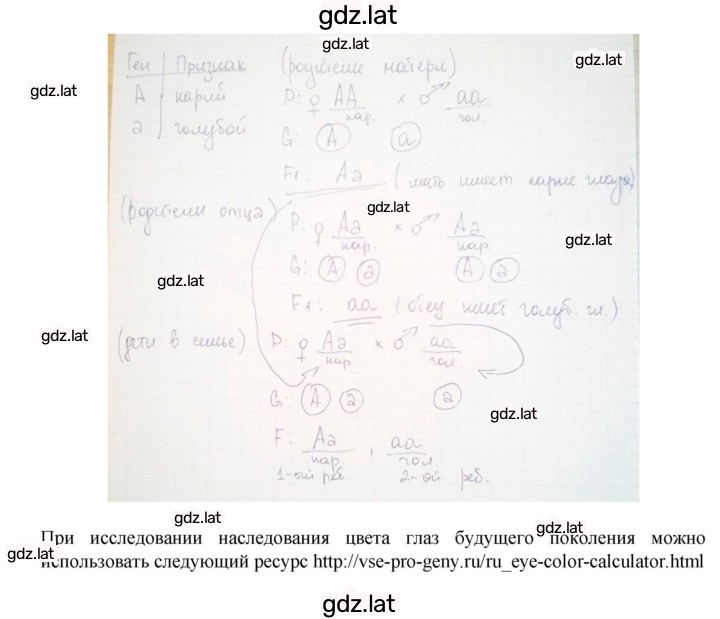 gdz.lat
gdz.lat
Ген | Признак (родители матери)
gdz.lat
gdz.lat
А карий P: ♀ АА × ♂ аа
кар. гол.
а голубой
G: А а
F1: Аа (мать имеет карие глаза)
gdz.lat
(родители отца)
P: ♀ Аа × ♂ Аа
кар. кар
gdz.lat
G: А а А а
gdz.lat
F1: аа (отец имеет голуб. гл.)
gdz.lat
(дети в семье) P: ♀ Аа × ♂ аа
кар. гол.
G: А а а
gdz.lat
F: Аа , аа
кар гол.
1-ый реб. 2-ой реб.
gdz.lat
gdz.lat
При исследовании наследования цвета глаз будущего поколения можно
gdz.lat
использовать следующий ресурс http://vse-pro-geny.ru/ru_eye-color-calculator.html
gdz.lat